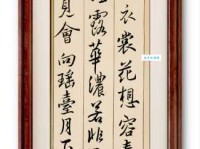 衣裳花想容春
露華濃若非
見會向瑤臺月下